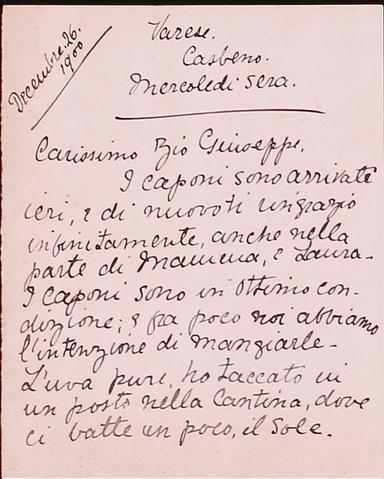 Decembre. 26.
1900
Varese.
Casbeno.
Mercoledi sera.
Carissimo Zio Giuseppe,
I caponi sono arrivati
ieri, e di nuovo ti ringrazio
infinitamente, anche nella
parte di Mamma, e Laura.
I caponi sono in ottimo con-
dizione; e fra poco noi abbiamo
l'intenzione di mangiarle.
L'uva pure, ho taccato in
un posto nella Cantina, dove
ci batte un poco, il sole.